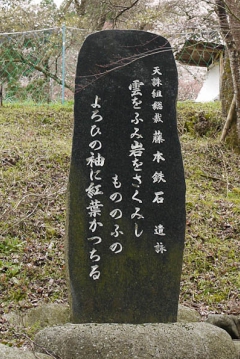 天誅組総裁 藤本鉄石 遺詠
雲をふみ岩をさくみし
もののふの
よろひの袖に紅葉かつちる